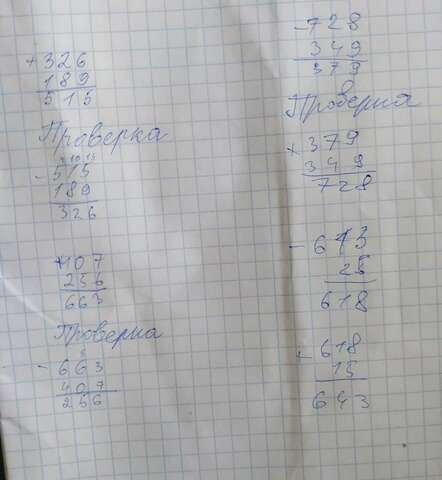 +326
189
515
Проверка
-515
189
326
+407
256
663
Проверка
-663
407
256
-728
349
379
Проверка
+379
349
728
-643
25
618
-618
15
643